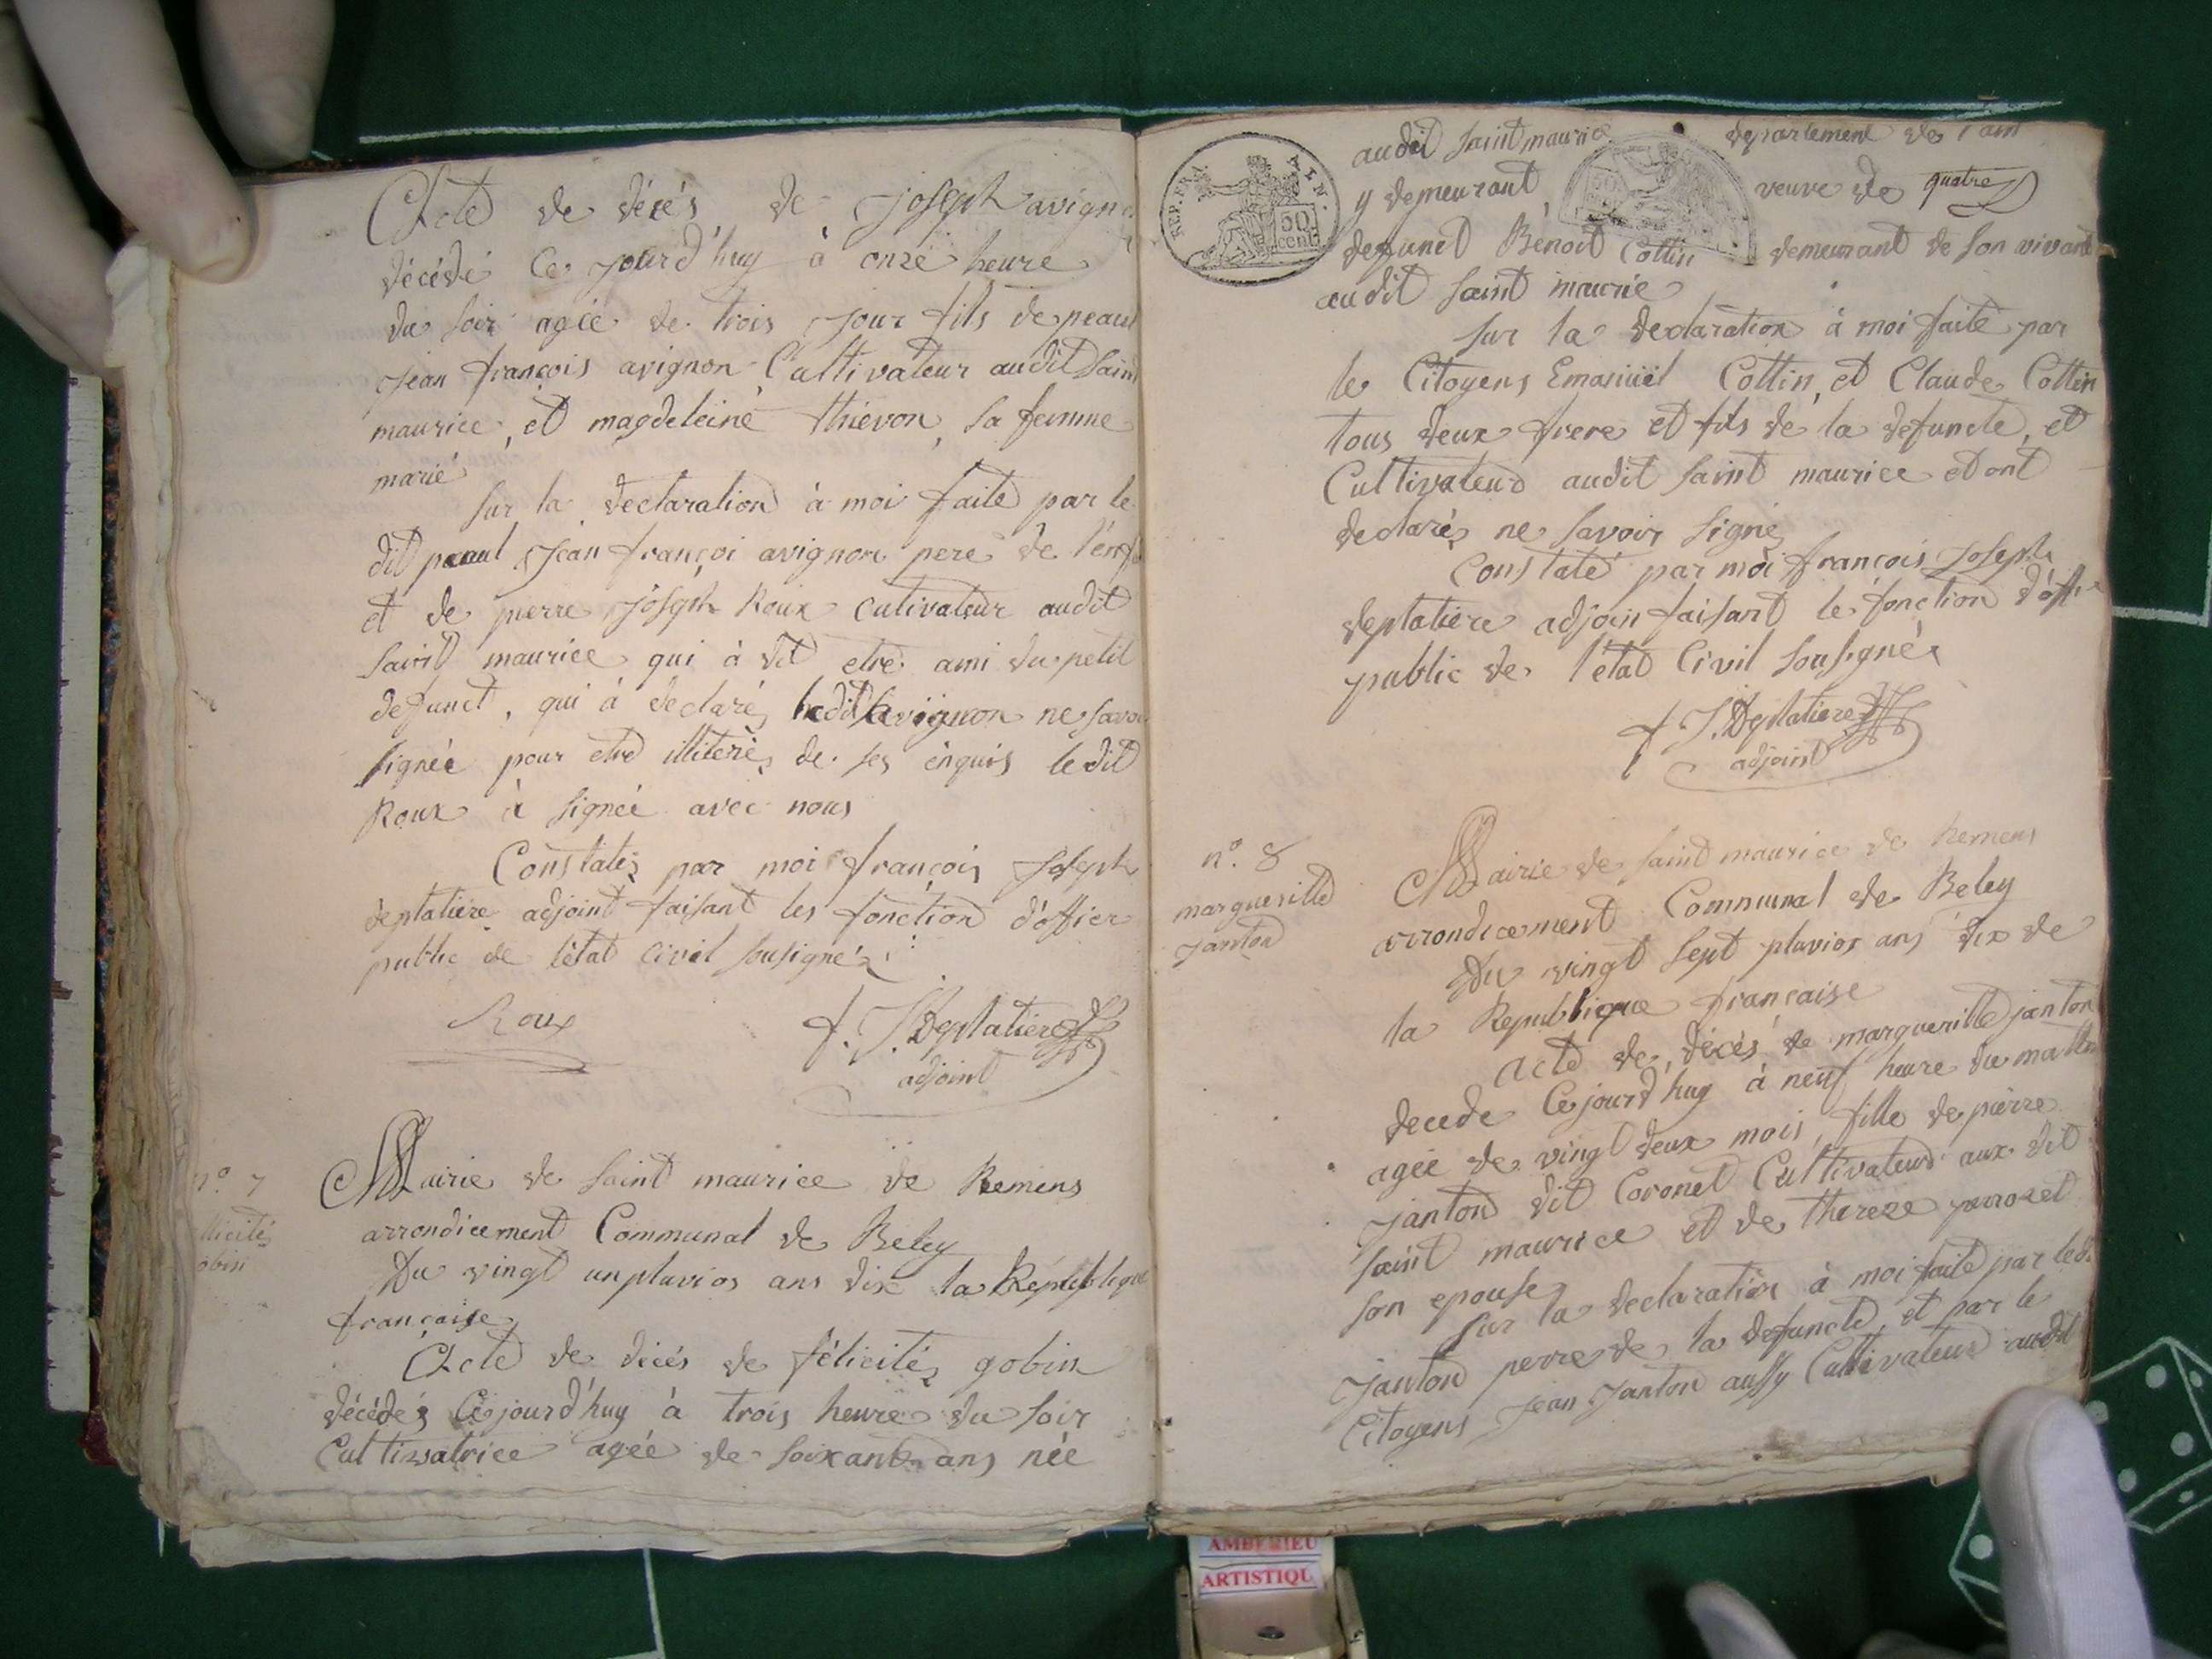 Acte de décés de Joseph avigno
décédé Ce jourd'huy à onze heure
du soir agée de trois jour fils de peaul
jean françois avignon Cultivateur audit saint
maurice, et magdeleine thievon, sa femme
marié
sur la declaration à moi faite par le
dit paul jean françoi avignon pere de l'enf
et de pierre joseph Roux cutivateur audit
saint maurice qui à dit etre ami du petit
defunct, qui à declaré, ledit avignon ne savoi
signée pour etre illiteré, de ses enquis ledit
Roux à signée avec nous
Constatés par moi françois Joseph
deplatiere adjoint faisant les fonction d'officer
public de l'état civil sousigné
Roux
f. J. Deplatiere
adjoint
n.º 7
llicité
obin
Mairie de saint maurice de Remens
arrondicement Communal de Beley
Du vingt un pluvios ans dix la Republique
française
Acte de décés de félicité, gobin
décédés Ce jourd'huy à trois heure du soir
Cultivatrice agée de soixante ans née
REP. FRA.
50
cent
audit saint maurice departement de l'ain
y demeurant, veuve de quatre
defunct Benoit Cottin demeurant de son vivant
audit saint maurice
sur la declaration à moi faite par
le Citoyens Emanuel Cottin, et Claude Cottin
tous deux frere et fils de la defuncte, et
Cultivateurs audit saint maurice et ont
declarés ne savoir signé
Constaté par moi françois Joseph
deplatiere adjoin faisant le fonction d'offi
public de l'état Civil sousignés
f. J. Deplatiere
adjoint
n.º 8
marguerille
janton
Mairie de saint maurice de Remens
arrondicement Communal de Beley
Du vingt sept pluvios ans dix de
la Republique française
acte de décés de marguerille janton
decede Ce jourd'huy à neuf heure du matin
agée de vingt deux mois, fille de pierre
janton dit Coronet Cultivateur aux dit
saint maurice et de thereze perrozet
son epouse
sur la declaration à moi faite par ledi
janton perre de la defuncte, et par le
Citoyens jean janton aussy Cultivateur audit
AMBERIEU
ARTISTIQU